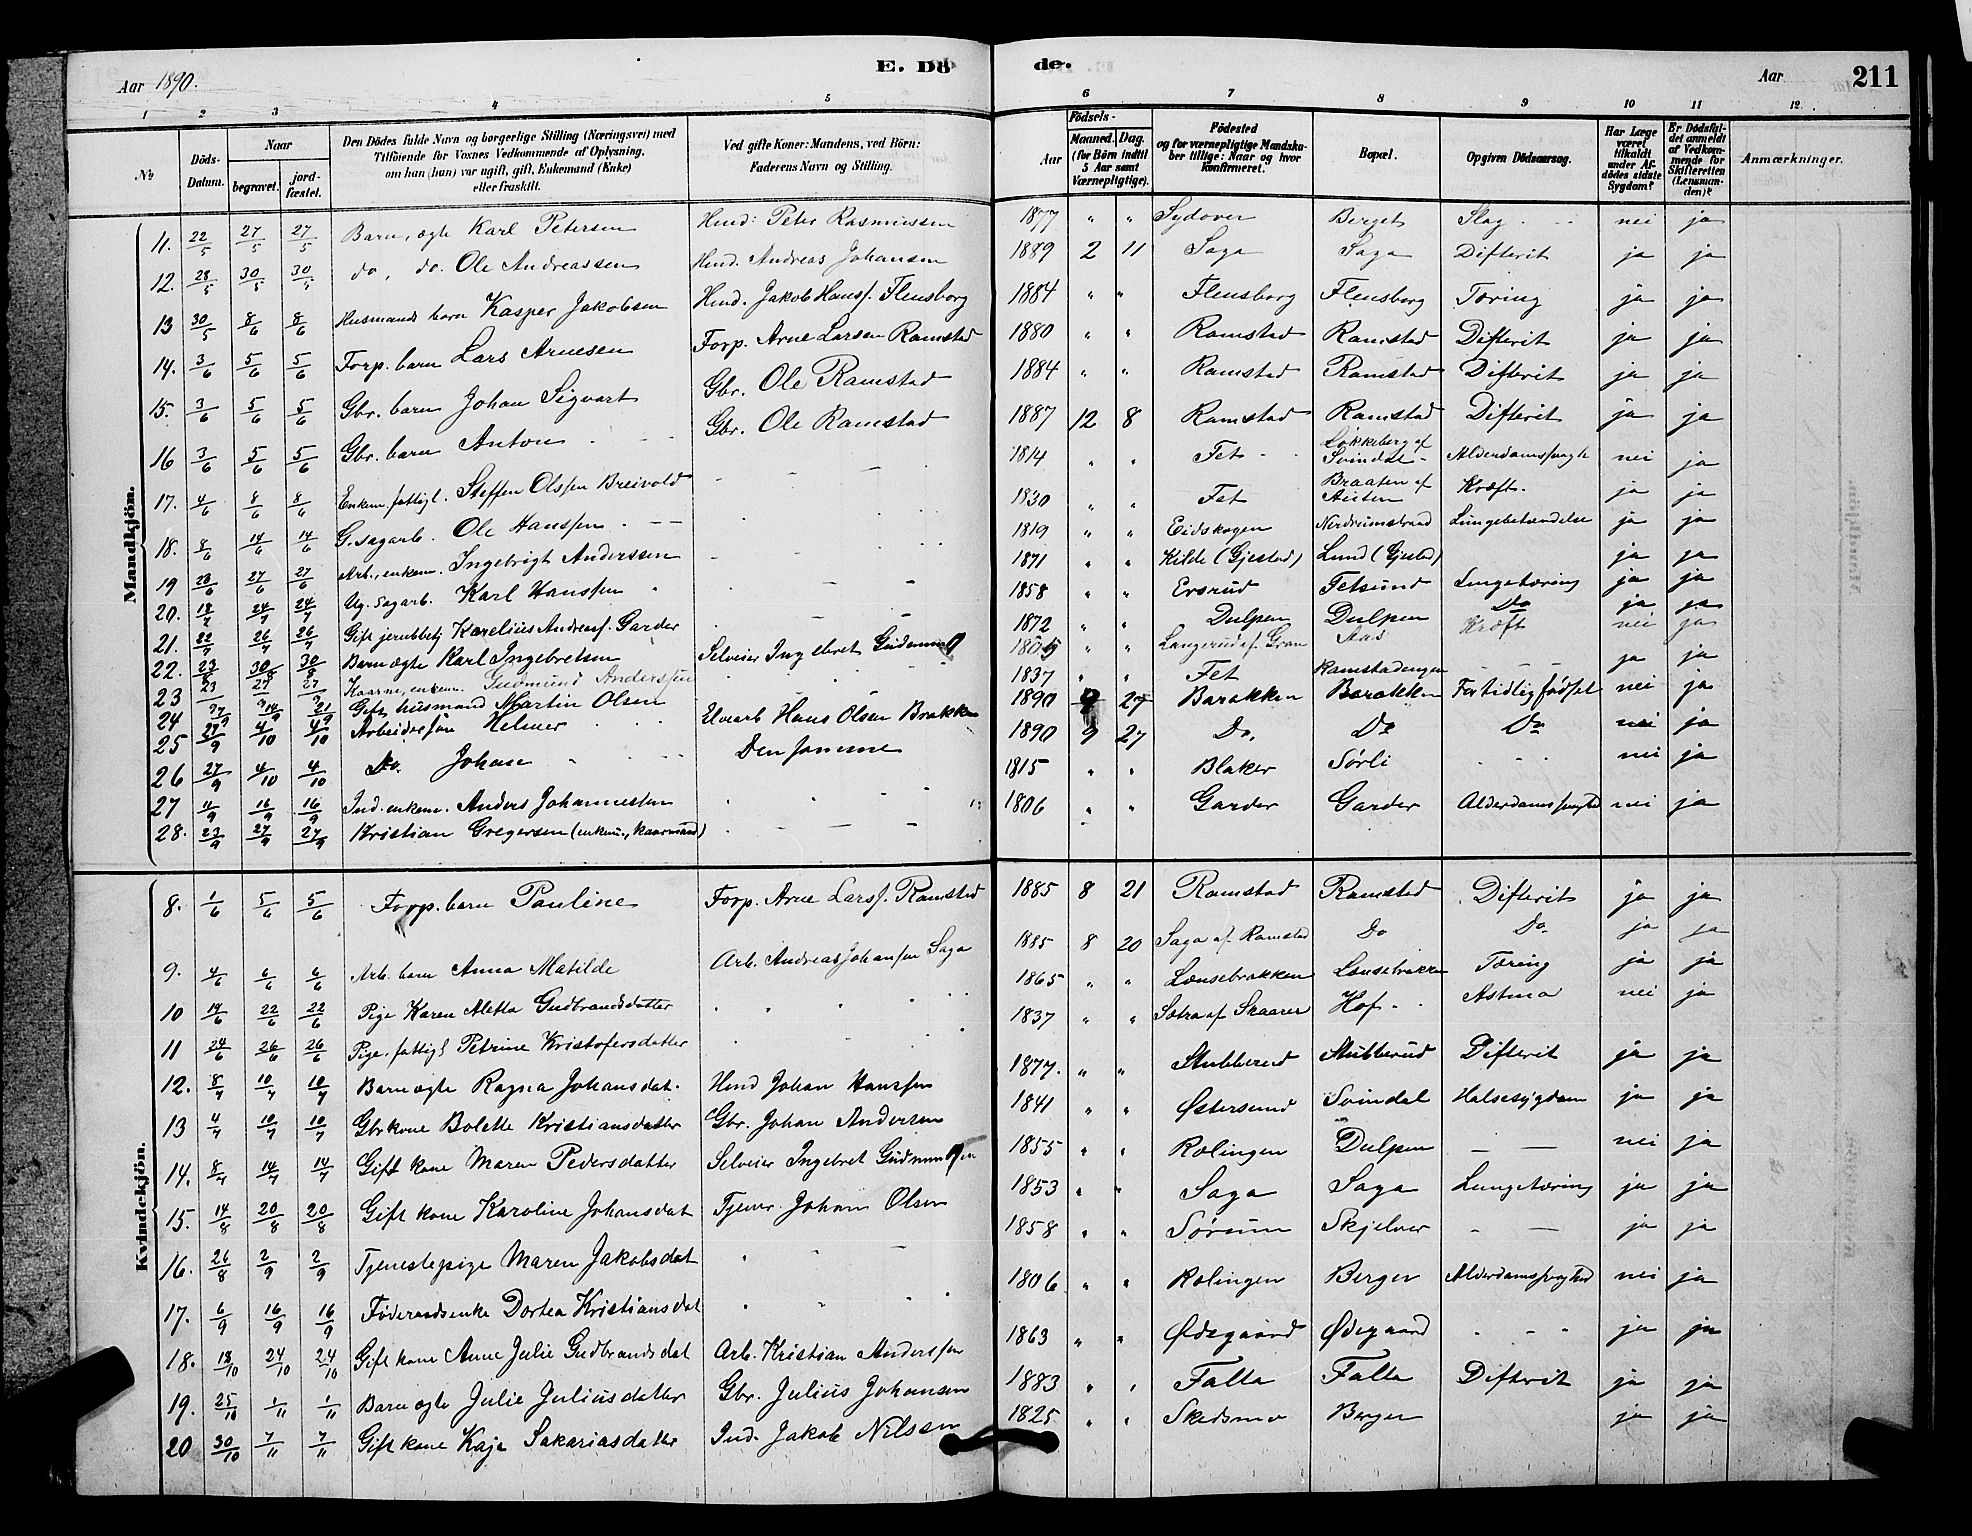 Aar 1890. E. Dö de. Aar 211
1 2 3 4 5 6 7 8 9 10 11 12.
№ Döds-Datum. Naar begravet. jordfæstet. Den Dödes fulde Navn og borgerlige Stilling (Næringsvei) med Tilföiende for Voxnes Vedkommende af Oplysning, om han (hun) var ugift, gift, Enkemand (Enke) eller fraskilt. Ved gifte Koner: Mandens, ved Börn: Faderens Navn og Stilling. Födsels- Aar Maaned. Dag. (for Börn indtil 5 Aar samt Værnepligtige). Födested og for værnepligtige Mandskaber tillige: Naar og hvor konfirmeret. Bopæl. Opgiven Dödsaarsag. Har Læge været tilkaldt under Afdödes sidste Sygdom? Er Dödsfaldet anmeldt af Vedkommende for Skifteretten (Lensmanden)? Anmærkninger.
Mandkjön.
11. 22/5 27/5 27/5 Barn, ægte Karl Petersen Husd: Peter Rasmussen 1877 " " Sydover Berget Slag nei ja
12. 28/5 30/5 30/5 do, do. Ole Andreassen Husd. Andreas Johansen 1889 2 11 Saga Saga Difterit ja ja
13 30/5 8/6 8/6 Husmands barn Kasper Jakobsen Husd. Jakob Hanss. Flensborg 1884 " " Flensborg Flensborg Tæring ja ja
14. 3/6 5/6 5/6 Forp. barn Lars Arnesen Forp. Arne Larsen Ramstad 1880 " " Ramstad Ramstad Difterit ja ja
15. 3/6 5/6 5/6 Gbr. barn Johan Sigvart Gbr. Ole Ramstad 1884 " " Ramstad Ramstad Difterit ja ja
16 3/6 5/6 5/6 Gbr. barn Anton Gbr. Ole Ramstad 1887 12 8 Ramstad Ramstad Difterit ja ja
17. 4/6 8/6 8/6 Enkem. fattigl. Steffen Olssen Breivold 1814 " " Fet Løkkeberg af Svindal Alderdomssvagh nei ja
18. 8/6 14/6 14/6 G. sagarb. Ole Hanssen 1830 " " Fet Braaten af Austen Kræft. ja ja
19 23/6 27/6 27/6 Arb., enkem. Ingebrigt Anderssen 1819 " " Eidskogen Nerdrumstrand Lungebetændelse ja ja
20. 18/7 24/7 24/7 Ug. sagarb. Karl Hanssen 1871 " " Kilde (Gjestad) Lund (Gjestad) ja ja
21. 22/7 26/7 26/7 Gift Karelius Andreass. Garder 1858 " " Ersrud Fetsund Lungetæring ja ja
22. 23/8 30/8 30/8 Barn ægte Karl Ingebretsen Selveier Ingebret Gudmund 1872 " " Dulpen Dulpen Do ja ja
23 23 27 27 Kaarm, enkem. Gudmund Anderssen " " Langerud af Gran Aas Kræft nei ja
24 14/9 21/9 Gift, husmand Martin Olsen 1837 " " Fet Ramstadengen ja ja
25 27/9 4/10 4/10 Arbeidersøn Helmer Hans Olsen Brakken 1890 9 27 Barakken Barakken Fortidlig fødsel nei ja
26 27/9 4/10 4/10 Do. Johan Den samme 1890 9 27 Do. Do Do nei ja
27 11/9 16/9 16/9 Ind. enkem. Anders Johannessen 1815 " " Blaker Sørli nei ja
28. 23/9 27/9 27/9 Kristian Gregersen (enkem., kaarmand) 1806 " " Garder Garder Alderdomssvaghed nei ja
Kvindekjön.
8. 1/6 5/6 5/6 Forp. barn Pauline Forp. Arne Larss. Ramstad 1885 8 21 Ramstad Ramstad Difterit ja ja
9. 4/6 6/6 6/6 Arb. barn Anna Matilde Arb. Andreas Johansen Saga 1885 8 20 Saga af Ramstad Do Do. ja ja
10 14/6 22/6 22/6 Pige Karen Aletta Gudbrandsdatter 1865 " " Lænsebrakken Lænsebrakken Tæring ja ja
11 24/6 26/6 26/6 Pige, fattigl Petrine Kristofersdatter 1837 " " Sætra af Skaarer Hof Astma nei ja
12. 8/7 10/7 10/7 Barn ægte Ragna Johansdat. Husd Johan Hanssen 1877. " " Stubberud Stubberud Difterit ja ja
13 4/7 10/7 10/7 Gbrkone Bolette Kristiansdatter Gbr. Johan Andersen 1841 " " Østersund Svindal Halsesygdom ja ja
14. 8/7 14/7 14/7 Gift kone Maren Pedersdatter Selveier Ingebret Gudmundsen 1855 " " Rølingen Dulpen nei ja
15. 14/8 20/8 20/8 Gift kone Karoline Johansdat Tjener Johan Olsen 1853 " " Saga Saga Lungetæring ja ja
16. 26/8 2/9 2/9 Tjenestepige Maren Jakobsdat 1858 " " Sørum Skjelver ja ja
17. 6/9 16/9 16/9 Føderaadsenke Dortea Kristiansdat 1806 " " Rølingen Berger Alderdomssvaghed nei ja
18. 18/10 24/10 24/10 Gift kone Anne Julie Gudbrandsdat Arb. Kristian Anderssen 1863 " " Ødegaard Ødegaard ja ja
19. 25/10 1/11 1/11 Barn ægte Julie Juliusdatter Gbr. Julius Johansen 1883 " " Falla Falla Difterit ja ja
20 30/10 7/11 7/11 Gift kone Kaja Sakariasdatter Ind. Jakob Nilssen 1825 " " Skedsmo Berger ja ja